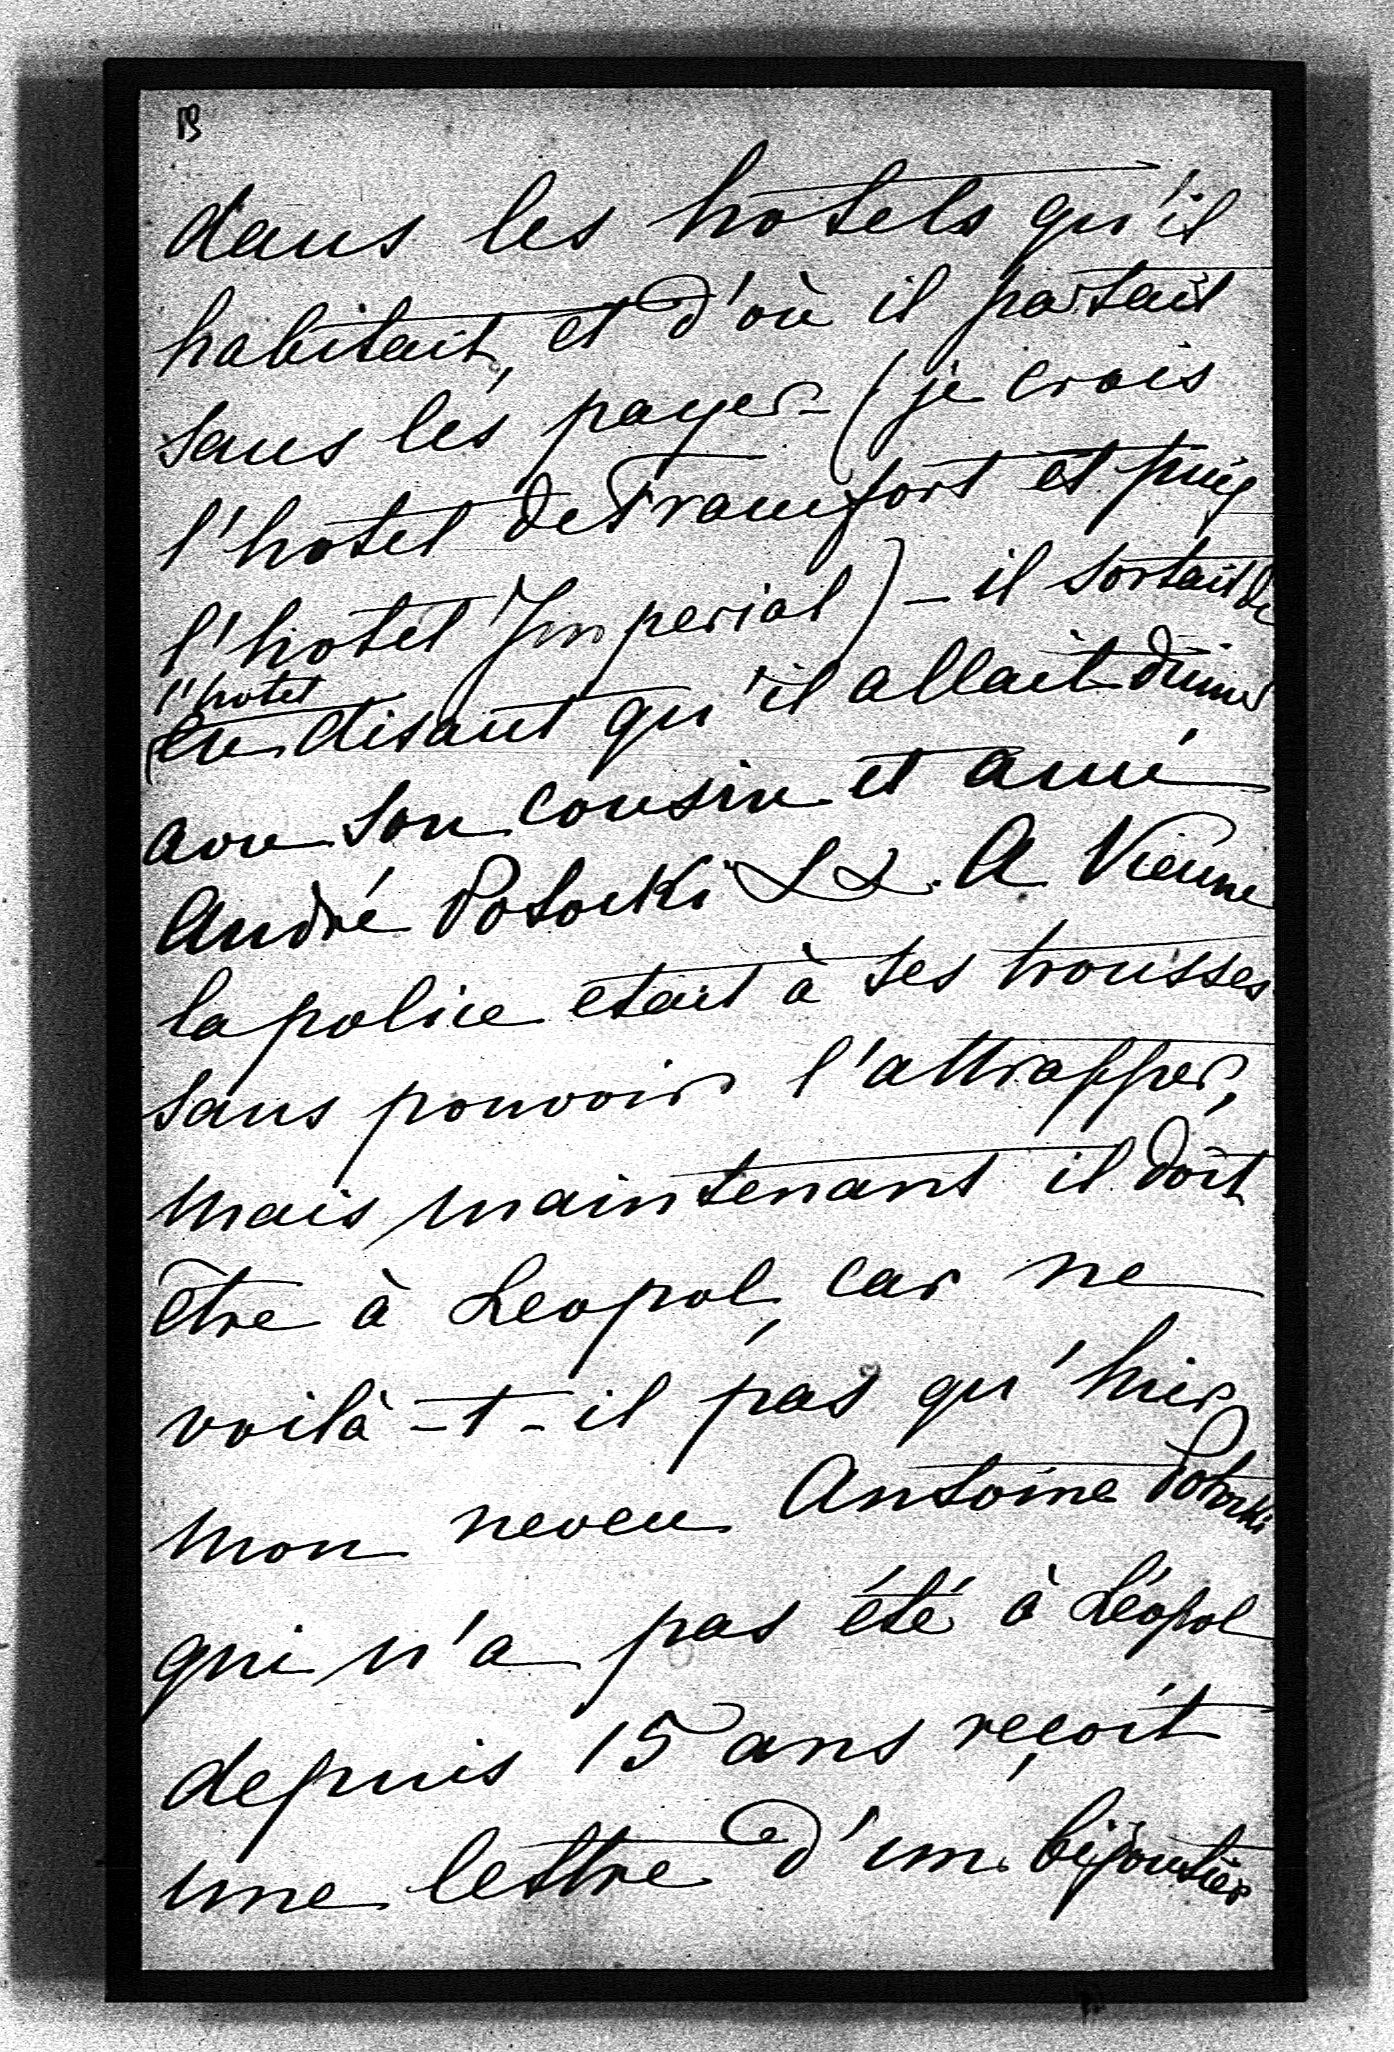 dans les hotels qu'il
habitait, et d'où il partait
sans les payer - (je crois
l'hotel de Francfort et puis
l'hotel Imperial) - il sortait de
l'hotel
en disant qu'il allait diner
avec son cousin et ami
André Potocki & &. A Vienne
la police etait à ses trousses
sans pouvoir l'attrapper,
mais maintenant il doit
être à Leopol, car ne
voilà-t-il pas qu'hier
mon neveu Antoine Potocki
qui n'a pas été à Léopol
depuis 15 ans reçoit
une lettre d'un bijoutier